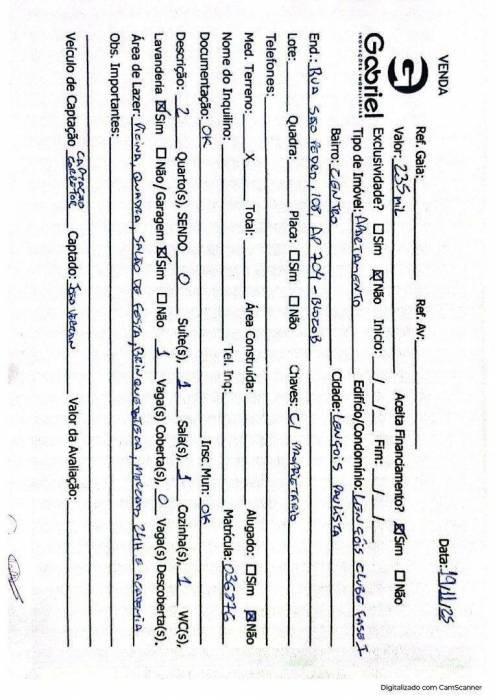 VENDA
Gabriel
INOVAÇÕES IMOBILIÁRIAS
Ref. Gaia: Ref. Av: Data: 19/11/25
Valor: 235 mil Aceita Financiamento? ☒Sim ☐Não
Exclusividade? ☐Sim ☒Não Inicio: / / Fim: / /
Tipo de Imóvel: APARTAMENTO Edifício/Condomínio: LENÇÓIS CLUBE FASE I
Bairro: CENTRO Cidade: LENÇOIS PAULISTA
End.: RUA SÃO PEDRO, 108, AP 704 - BLOCO B
Lote: Quadra: Placa: ☐Sim ☐Não Chaves: C/ PROPRIETARIO
Telefones:
Med. Terreno: X Total: Área Construída: Alugado: ☐Sim ☒Não
Nome do Inquilino: Tel. Inq: Matrícula: 036876
Documentação: OK Insc. Mun: OK
Descrição: 2 Quarto(s), SENDO 0 Suíte(s), 1 Sala(s), 1 Cozinha(s), 1 WC(s),
Lavanderia ☒Sim ☐Não/Garagem ☒Sim ☐Não 1 Vaga(s) Coberta(s), 0 Vaga(s) Descoberta(s).
Área de Lazer: PICINA, QUADRA, SALÃO DE FESTA, BRINQUEDOTECA, MERCADO 24H E ACADEMIA
Obs. Importantes:
Veículo de Captação CAPTAÇÃO CORRETOR Captado: JOÃO Valor da Avaliação:
Digitalizado com CamScanner